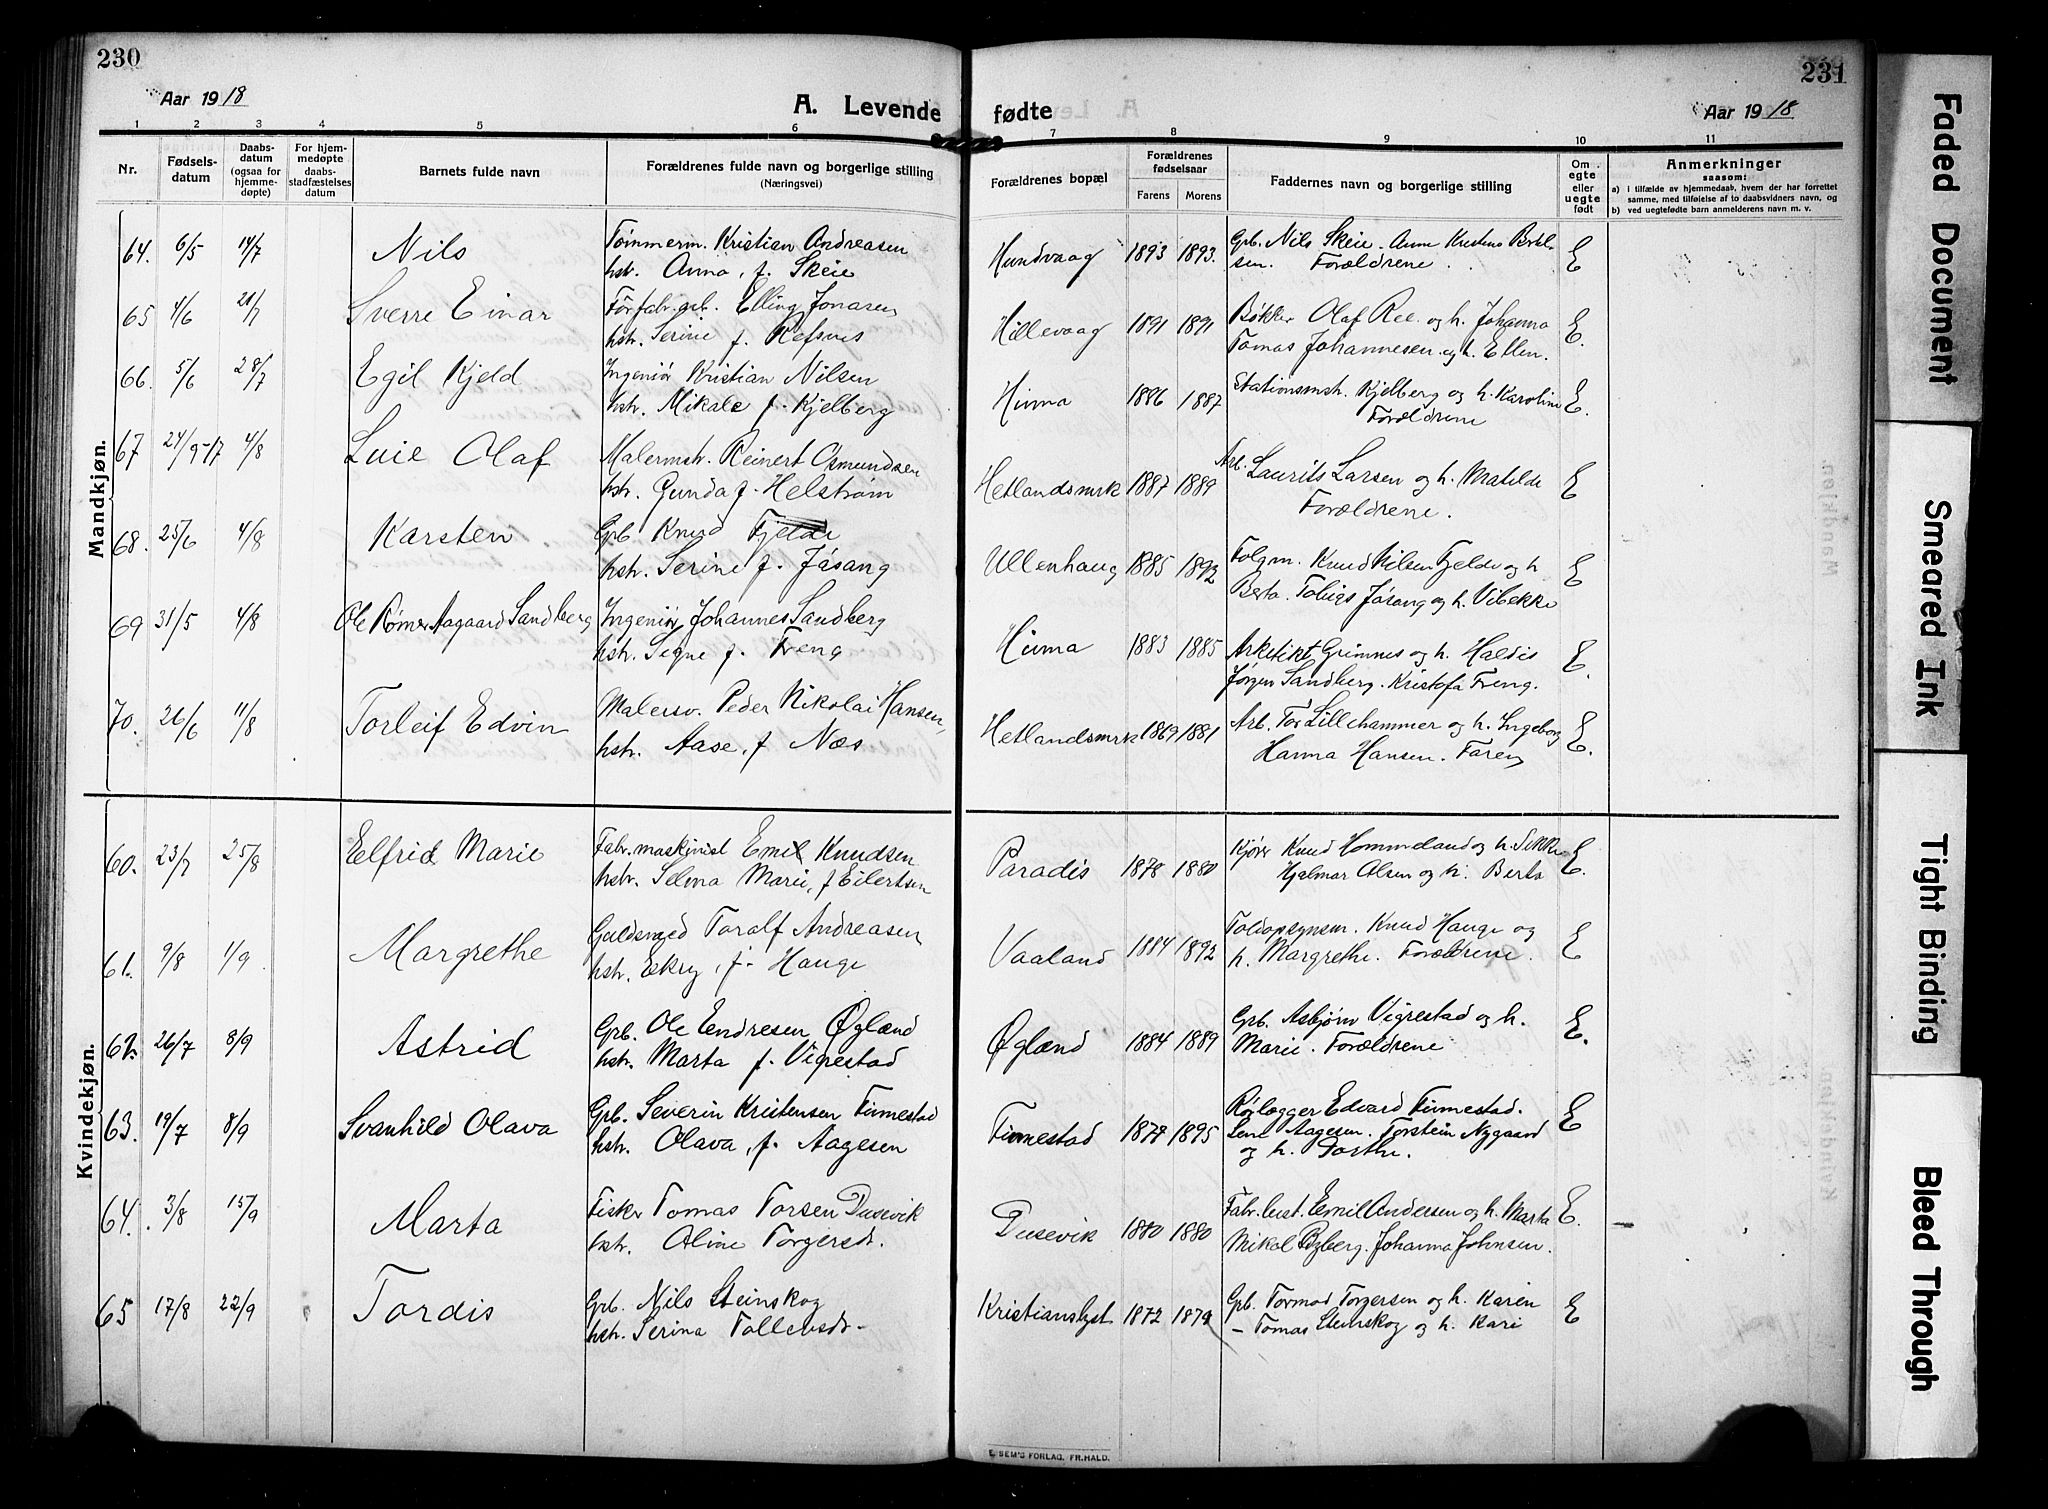 230
Aar 1918
A. Levende
1 2 3 4 5 6
Nr.
Fødsels-
datum
Daabs-
datum
(ogsaa for
hjemme-
døpte)
For hjem-
medøpte
daabs-
stadfæstelses
datum
Barnets fulde navn
Forældrenes fulde navn og borgerlige stilling
(Næringsvei)
Mandkjøn.
64. 6/5 14/7 Nils Tømmerm. Kristian Andreasen
hstr. Anna, f. Skeie
65 4/6 21/7 Sverre Einar Elling Jonasen
hstr. Serine f. Refsnes
66. 5/6 28/7 Egil Kjeld Ingeniør Kristian Nilsen
hstr. Mikale f. Kjelberg
67 24/9-17 4/8 Luie Olaf Malermstr. Reinert Osmundsen
hstr. Gunda f. Helstrøm
68. 25/6 4/8 Karsten Grb. Knud Fjelde
hstr. Serine f. Jåsang
69 31/5 4/8 Ole Rømer Aagaard Sandberg Ingeniør Johannes Sandberg
hstr. Signe f. Treng
70. 26/6 11/8 Torleif Edvin Malersv. Peder Nikolai Hansen,
hstr. Aase, f. Næs
Kvindekjøn.
60. 23/7 25/8 Elfrid Marie Fabr. maskinist Emil Knudsen
hstr. Selma Marie, f Eilertsen
61. 9/8 1/9 Margrethe Guldsmed Toralf Andreasen
hstr. f. Hauge
62. 26/7 8/9 Astrid Grb. Ole Endresen Øglænd
hstr. Marta f. Vigrestad
63. 19/7 8/9 Svanhild Olava Grb. Severin Kristensen Finnestad
hstr. Olava, f. Aagesen
64. 3/8 15/9 Marta Fisker Tomas Torsen Dusevik
hstr. Aline Torgersdr.
65 17/8 22/9 Tordis Grb. Nils Steinskog
hstr. Serina Tollevsdr.
231
fødte
Aar 1918
7 8 9 10 11
Forældrenes bopæl
Forældrenes
fødselsaar
Farens Morens
Faddernes navn og borgerlige stilling
Om
egte
eller
uegte
født
Anmerkninger
saasom:
a) i tilfælde av hjemmedaab, hvem der har forrettet
samme, med tilføielse af to daabsvidners navn, og
b) ved uegtefødte barn anmelderens navn m. v.
Hundvaag 1893 1893. Grb. Nils Skeie. Anne Kristens Bertel-
sen. Forældrene. E
Hillevaag 1891 1891 Bøkker Olaf Ree. og h. Johanna
Tomas Johannesen og h. Ellen. E.
Hinna 1886 1887 Stationsmstr. Kjelberg og h. Karoline
Forældrene E.
Hetlandsmrk 1887 1889 Arb. Laurits Larsen og h. Matilde
Forældrene. E
Ullenhaug 1885 1892 Folgm. Knud Nilsen Fjelde og h
Berta. Tobias Jåsang og h. Vibekke E
Hinna 1883 1885 Arkitekt Grimnes og h. Haldis
Jørgen Sandberg. Kristofa Treng. E.
Hetlandsmrk 1869 1881 Arb. Tor Lillehammer og h. Ingeborg
Hanna Hansen. Faren E.
Paradis 1878 1880 Kjører Knud Hommeland og h. Sikke
Hjalmar Olsen og h. Berta E.
Vaaland 1884 1892 Toldopsynsm. Knud Hauge og
h. Margrethe. Forældrene. E
Øglænd 1884 1889 Grb. Asbjørn Vigrestad og h.
Marie. Forældrene E.
Finnestad 1895 Rørlægger Edvard Finnestad.
Lene Aagesen. Torstein Nygaard
og h. Dorthe. E
Dusevik 1880 1880 Fabr. best. Emil Andersen og h. Marta
Mikal Johanna Johnsen. E.
Kristianslyst 1872 1879 Grb. Tormod Torgersen og h. Karen
— Tomas Steinskog og h. Kari E
E. SEM'S FORLAG, FR.HALD.
Faded Document
Smeared Ink
Tight Binding
Bleed Through